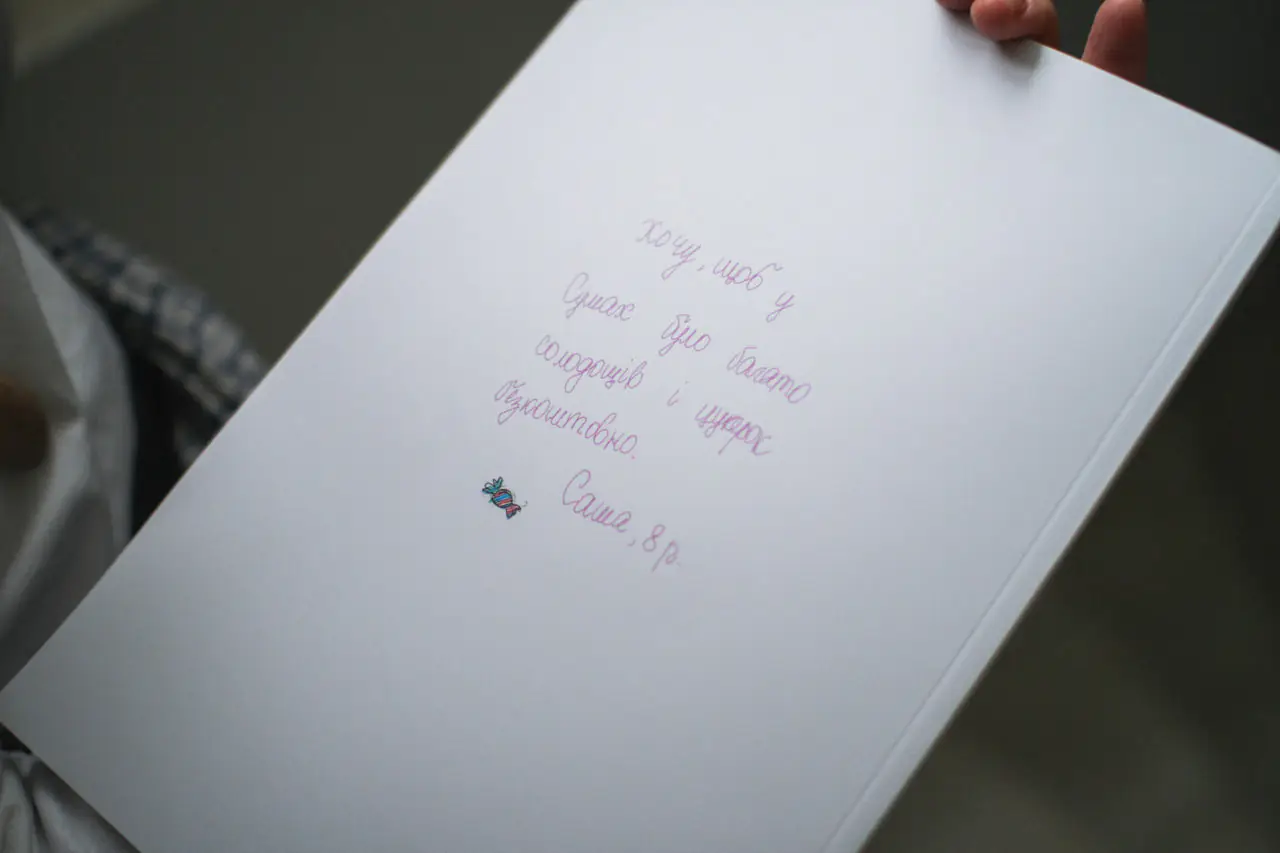 Хочу, щоб у
Сумах було багато
солодощів і цукерок
безкоштовно.
Саша, 8 р.